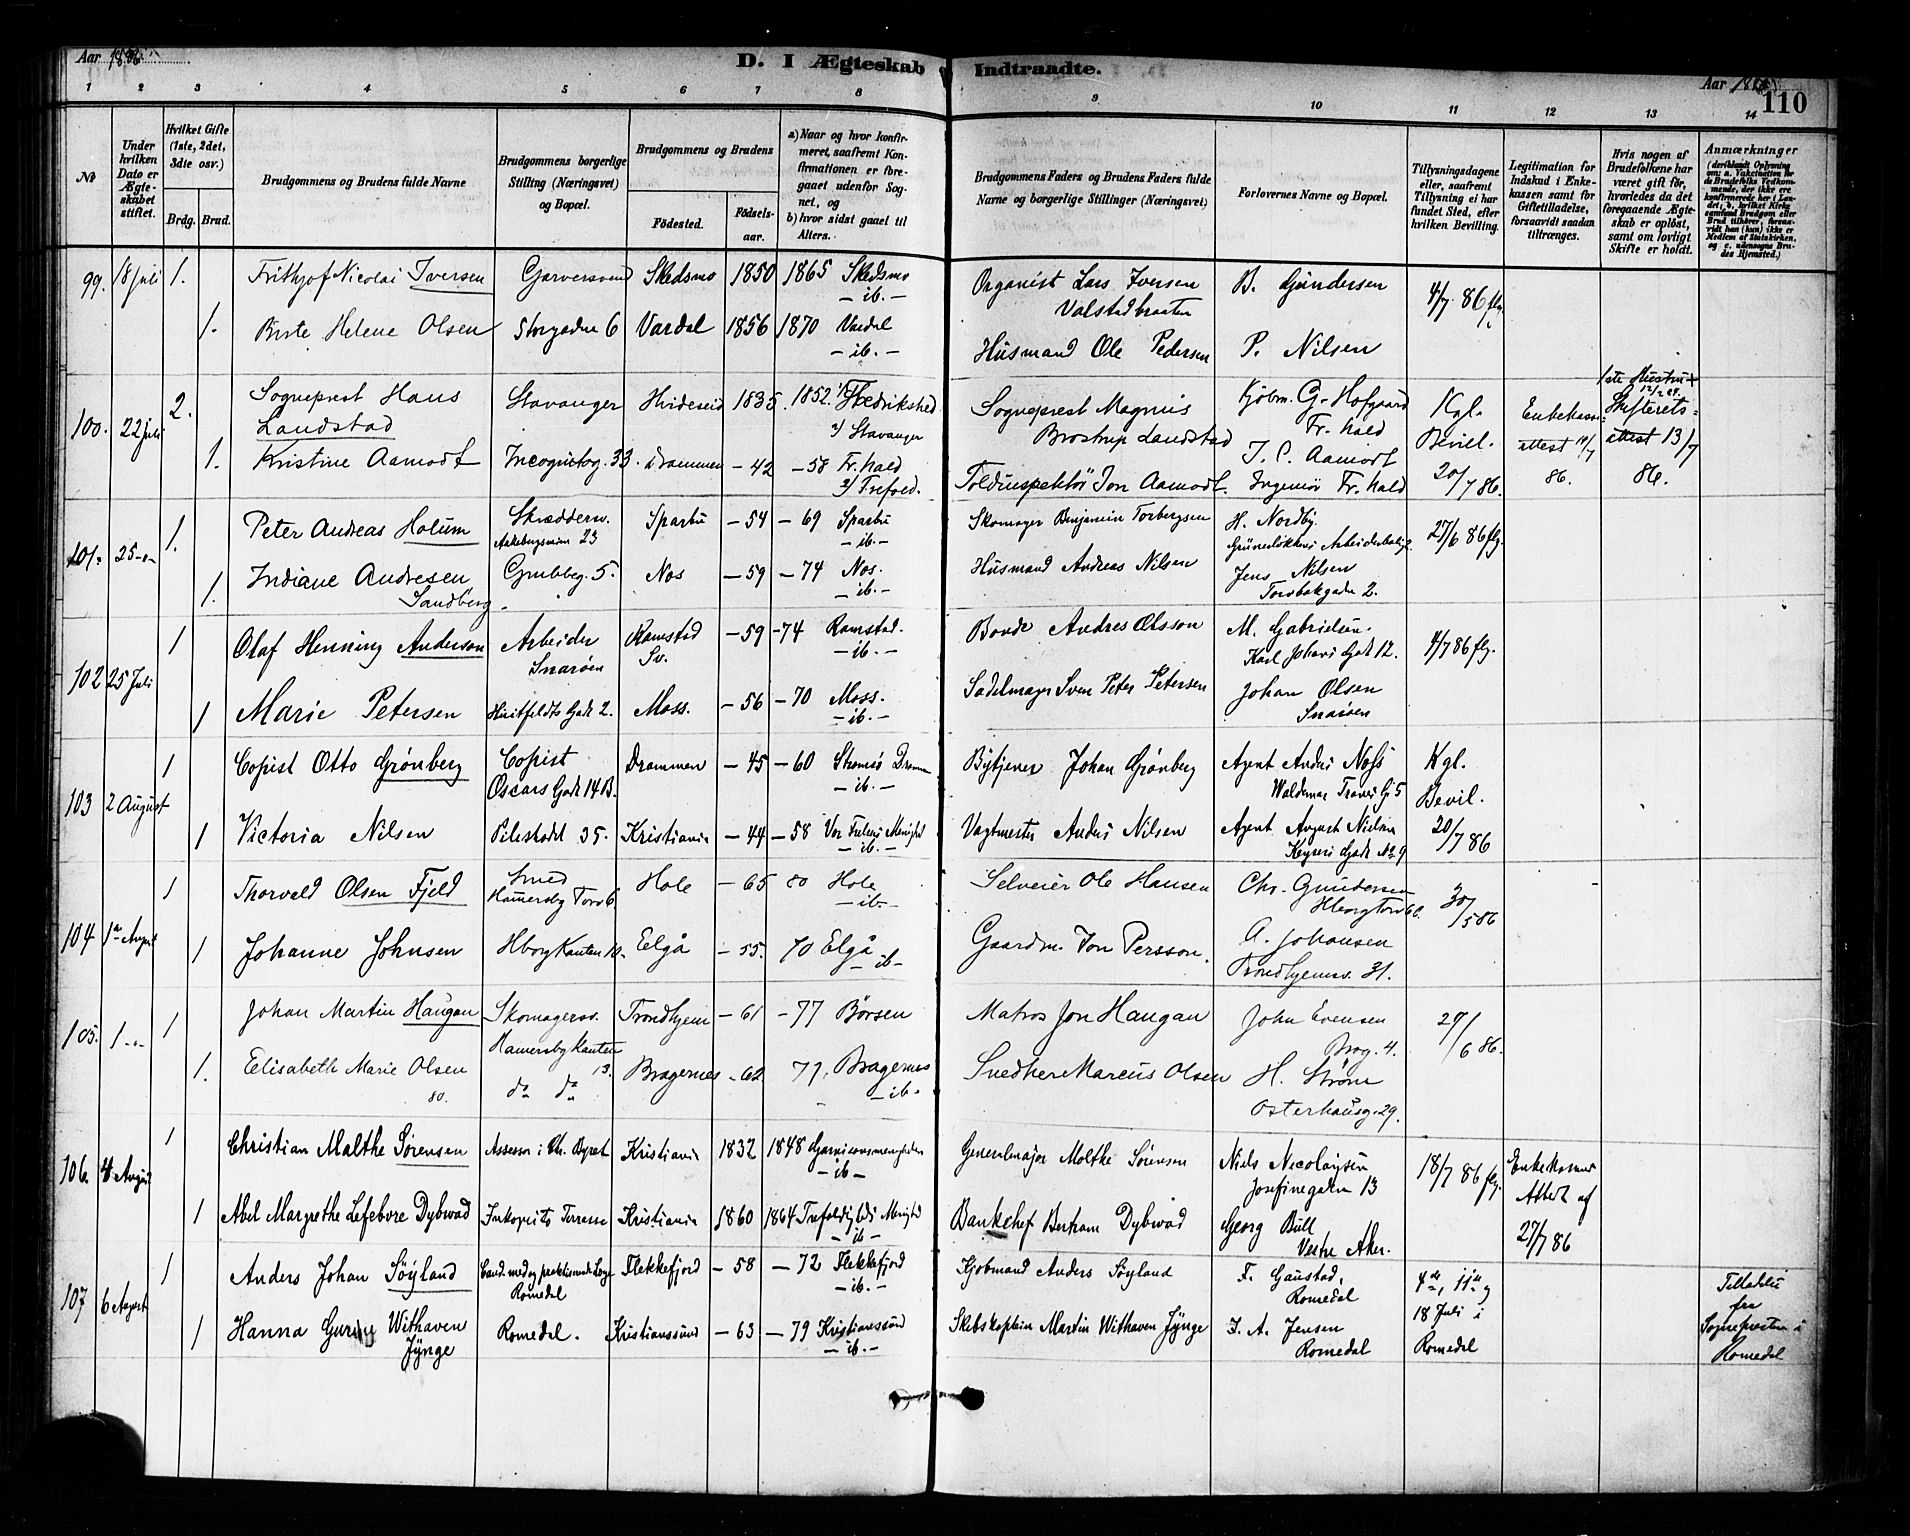 Aar 1886
D. I Ægteskab Indtraadte.
Aar 18
110
1 2 3 4 5 6 7 8 9 10 11 12 13 14
No
Under hvilken Dato er Ægteskabet stiftet.
Hvilket Gifte (1ste, 2det, 3die osv.)
Brdg. Brud.
Brudgommens og Brudens fulde Navne
Brudgommens borgerlige Stilling (Næringsvei) og Bopæl.
Brudgommens og Brudens
Fødested. Fødselsaar.
a) Naar og hvor konfirmeret, saafremt Konfirmationen er foregaaet udenfor Sognet, og
b) hvor sidst gaaet til Alters.
Brudgommens Faders og Brudens Faders fulde Navne og borgerlige Stillinger (Næringsvei)
Forlovernes Navne og Bopæl.
Tillysningsdagene eller, saafremt Tillysning ei har fundet Sted, efter hvilken Bevilling.
Legitimation for Indskud i Enkekassen samt for Giftetilladelse, forsaavidt saadan tiltrænges.
Hvis nogen af Brudefolkene har været gift før, hvorledes da det foregaaende Ægteskab er opløst, samt om lovligt Skifte er holdt.
Anmærkninger
99. 18 juli 1. Frithjof Nicolai Iversen Garversvend Skedsmo 1850 1865 Skedsmo Organist Lars Iversen B. Gundersen 4/7 86 flg.
— ib. — Valstadbraaten
1. Berte Helene Olsen Storgaden 6 Vardal 1856 1870 Vardal Husmand Ole Pedersen P. Nilsen
— ib. —
100. 22 juli 2. Sogneprest Hans Stavanger Hvideseid 1835. 1852. Fredrikshald Sogneprest Magnus Kjøbm. G. Hofgaard Kgl. Enkekasse- 1ste Hustru + Skifterets-
Landstad 2/ Stavanger Brostrup Landstad Fr. hald Bevil. attest attest 13/7
1. Kristine Aamodt Incognitog. 33. Drammen — 42 — 58 Fr. hald Toldinspektør Jon Aamodt. I. C. Aamodt 20/7 86. 86. 86.
2/ Trefold. Ingeniør Fr. hald
101. 25 — 1. Peter Andreas Holum Skrædderm. Sparbu — 54 — 69 Sparbu Skomager Benjamin Torbergsen H. Nordby. 27/6 86 flg.
Aakebergveien 23 — ib. — Grünerløkkens Arbeiderbolig
1. Indiane Andresen Grubbeg. 5. Nes — 59 — 74 Nes. Husmand Andreas Nilsen Jens Nilsen
Sandberg. — ib. — Torvbakgaden 2.
102 25 Juli 1 Olaf Henning Anderson Arbeider Ramstad — 59 — 74 Ramstad. Bonde Andres Olsson M. Gabrielsen. 4/7 86 flg.
Snarøen Sv. — ib. — Karl Johans Gade 12.
1 Marie Petersen Huitfeldts Gade 2. Moss. — 56 — 70 Moss. Sadelmager Sven Peter Petersen Johan Olsen
— ib. — Snarøen
103 2 August 1 Copist Otto Grønberg Copist Drammen — 45 — 60 Strømsø Drammen Bytjener Johan Grønberg Agent Anders Kgl.
Oscars Gade 14 B. — ib. — Waldemar Thranes G. 5 Bevil.
1 Victoria Nilsen Pilestrædet 35. Kristiania — 44 — 58 Vor Frelsers Menighed Vagtmester Anders Nilsen Agent August Nielsen 20/7 86
— ib. — Keysers Gade No 9
104 1ste August 1 Thorvald Olsen Fjeld Smed Hole — 65 80 Hole Selveier Ole Hansen Chr. Gundersen 30/5 86
Hammersby Torv 6 — ib. — Hborg Torv 6.
1 Johanne Johnsen Hborg Kanten Elgå — 55. 70 Elgå Gaardm. Jon Persson. A. Johansen
— ib — Trondhjemsv. 31.
105. 1 — 1 Johan Martin Haugan Skomagersv. Trondhjem — 61 — 77 Børsen Matros Jon Haugan John Evensen 27/6 86.
Hamersby Kanten 13. Brog. 4.
1. Elisabeth Marie Olsen do do Bragernes — 62 77. Bragernes Snedker Marcus Olsen H. Strøm
80. — ib. — Osterhausg. 29.
106. 4 August 1 Christian Malthe Sørensen Assessor i Ch. Byret Kristiania 1832 1848 Garnisonsmenigheden Generalmajor Moltke Sørensen Niels Nicolaysen 18/7 86 flg. Enkekasse
— ib — Josefinegaden 13 Attest af
1 Abel Margrethe Lefebvre Dybwad Inkognito Terrasse Kristiania 1860 1864 Trefoldigheds Menighed Bankchef Bertram Dybwad Georg Bull 27/7 86
— ib — Vestre Aker.
107 6 August 1 Anders Johan Søyland Cand. med og praktiserende Læge Flekkefjord — 58 — 72 Flekkefjord Kjøbmand Anders Søyland F. Gaustad, 4de, 11te og Tilladelse
Romedal — ib. — Romedal 18 Juli i fra
1 Hanna Withaven Romedal. Kristianssund — 63 — 79 Kristianssund Skibskaptein Martin Withaven Jynge J. A. Jensen Romedal Sognepresten i
Jynge — ib. — Romedal Romedal